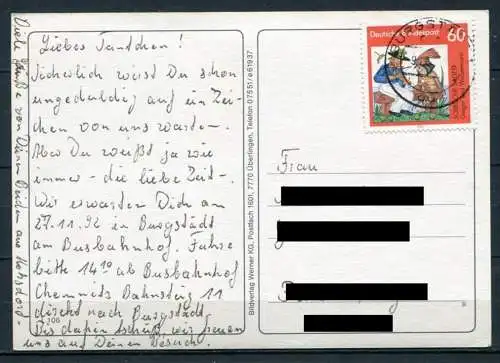 Liebes Tantchen!
Sicherlich wirst Du schon
ungeduldig auf ein Zei-
chen von uns warten.
Aber Du weißt ja wie
immer - die liebe Zeit -.
Wir erwarten Dich am
27.11.92 in Burgstädt
am Busbahnhof. Fahre
bitte 14¹⁰ ab Busbahnhof
Chemnitz Bahnsteig 11
direkt nach Burgstädt.
Bis dahin tschüß, wir freuen
uns auf Deinen Besuch.
Viele Grüße von Deinen Beiden aus
Bildverlag Werner KG, Postfach 1601, 7770 Überlingen, Telefon 07551/61937
Deutsche Bundespost
60
BURGST
Frau